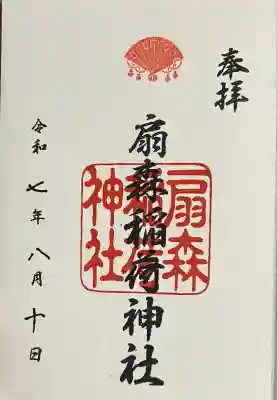 奉拝
扇森稲荷神社
扇森
稲荷
神社
令和七年八月十日